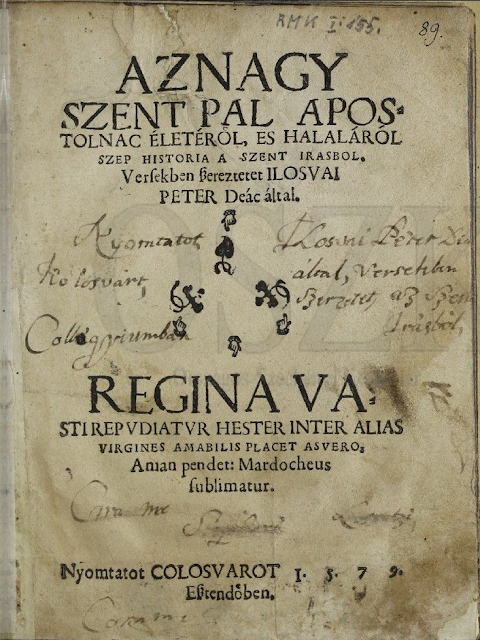 RMK I. 155.
89.
AZ NAGY
SZENT PAL APOS-
TOLNAC ÉLETÉRŐL, ES HALALÁRÓL
SZEP HISTORIA A SZENT IRASBOL.
Versekben ßereztetet ILOSVAI
PETER Deác által.
Nyomtatot Ilosvai Peter
Kolosvárt, által, Versekben
Szerzetet, az Szent
Collegyiumban Irásból,
REGINA VA-
STI REPVDIATVR HESTER INTER ALIAS
VIRGINES AMABILIS PLACET ASVERO:
Aman pendet: Mardocheus
sublimatur.
Nyomtatot COLOSVAROT 1. 5. 7 9.
Eßtendőben.